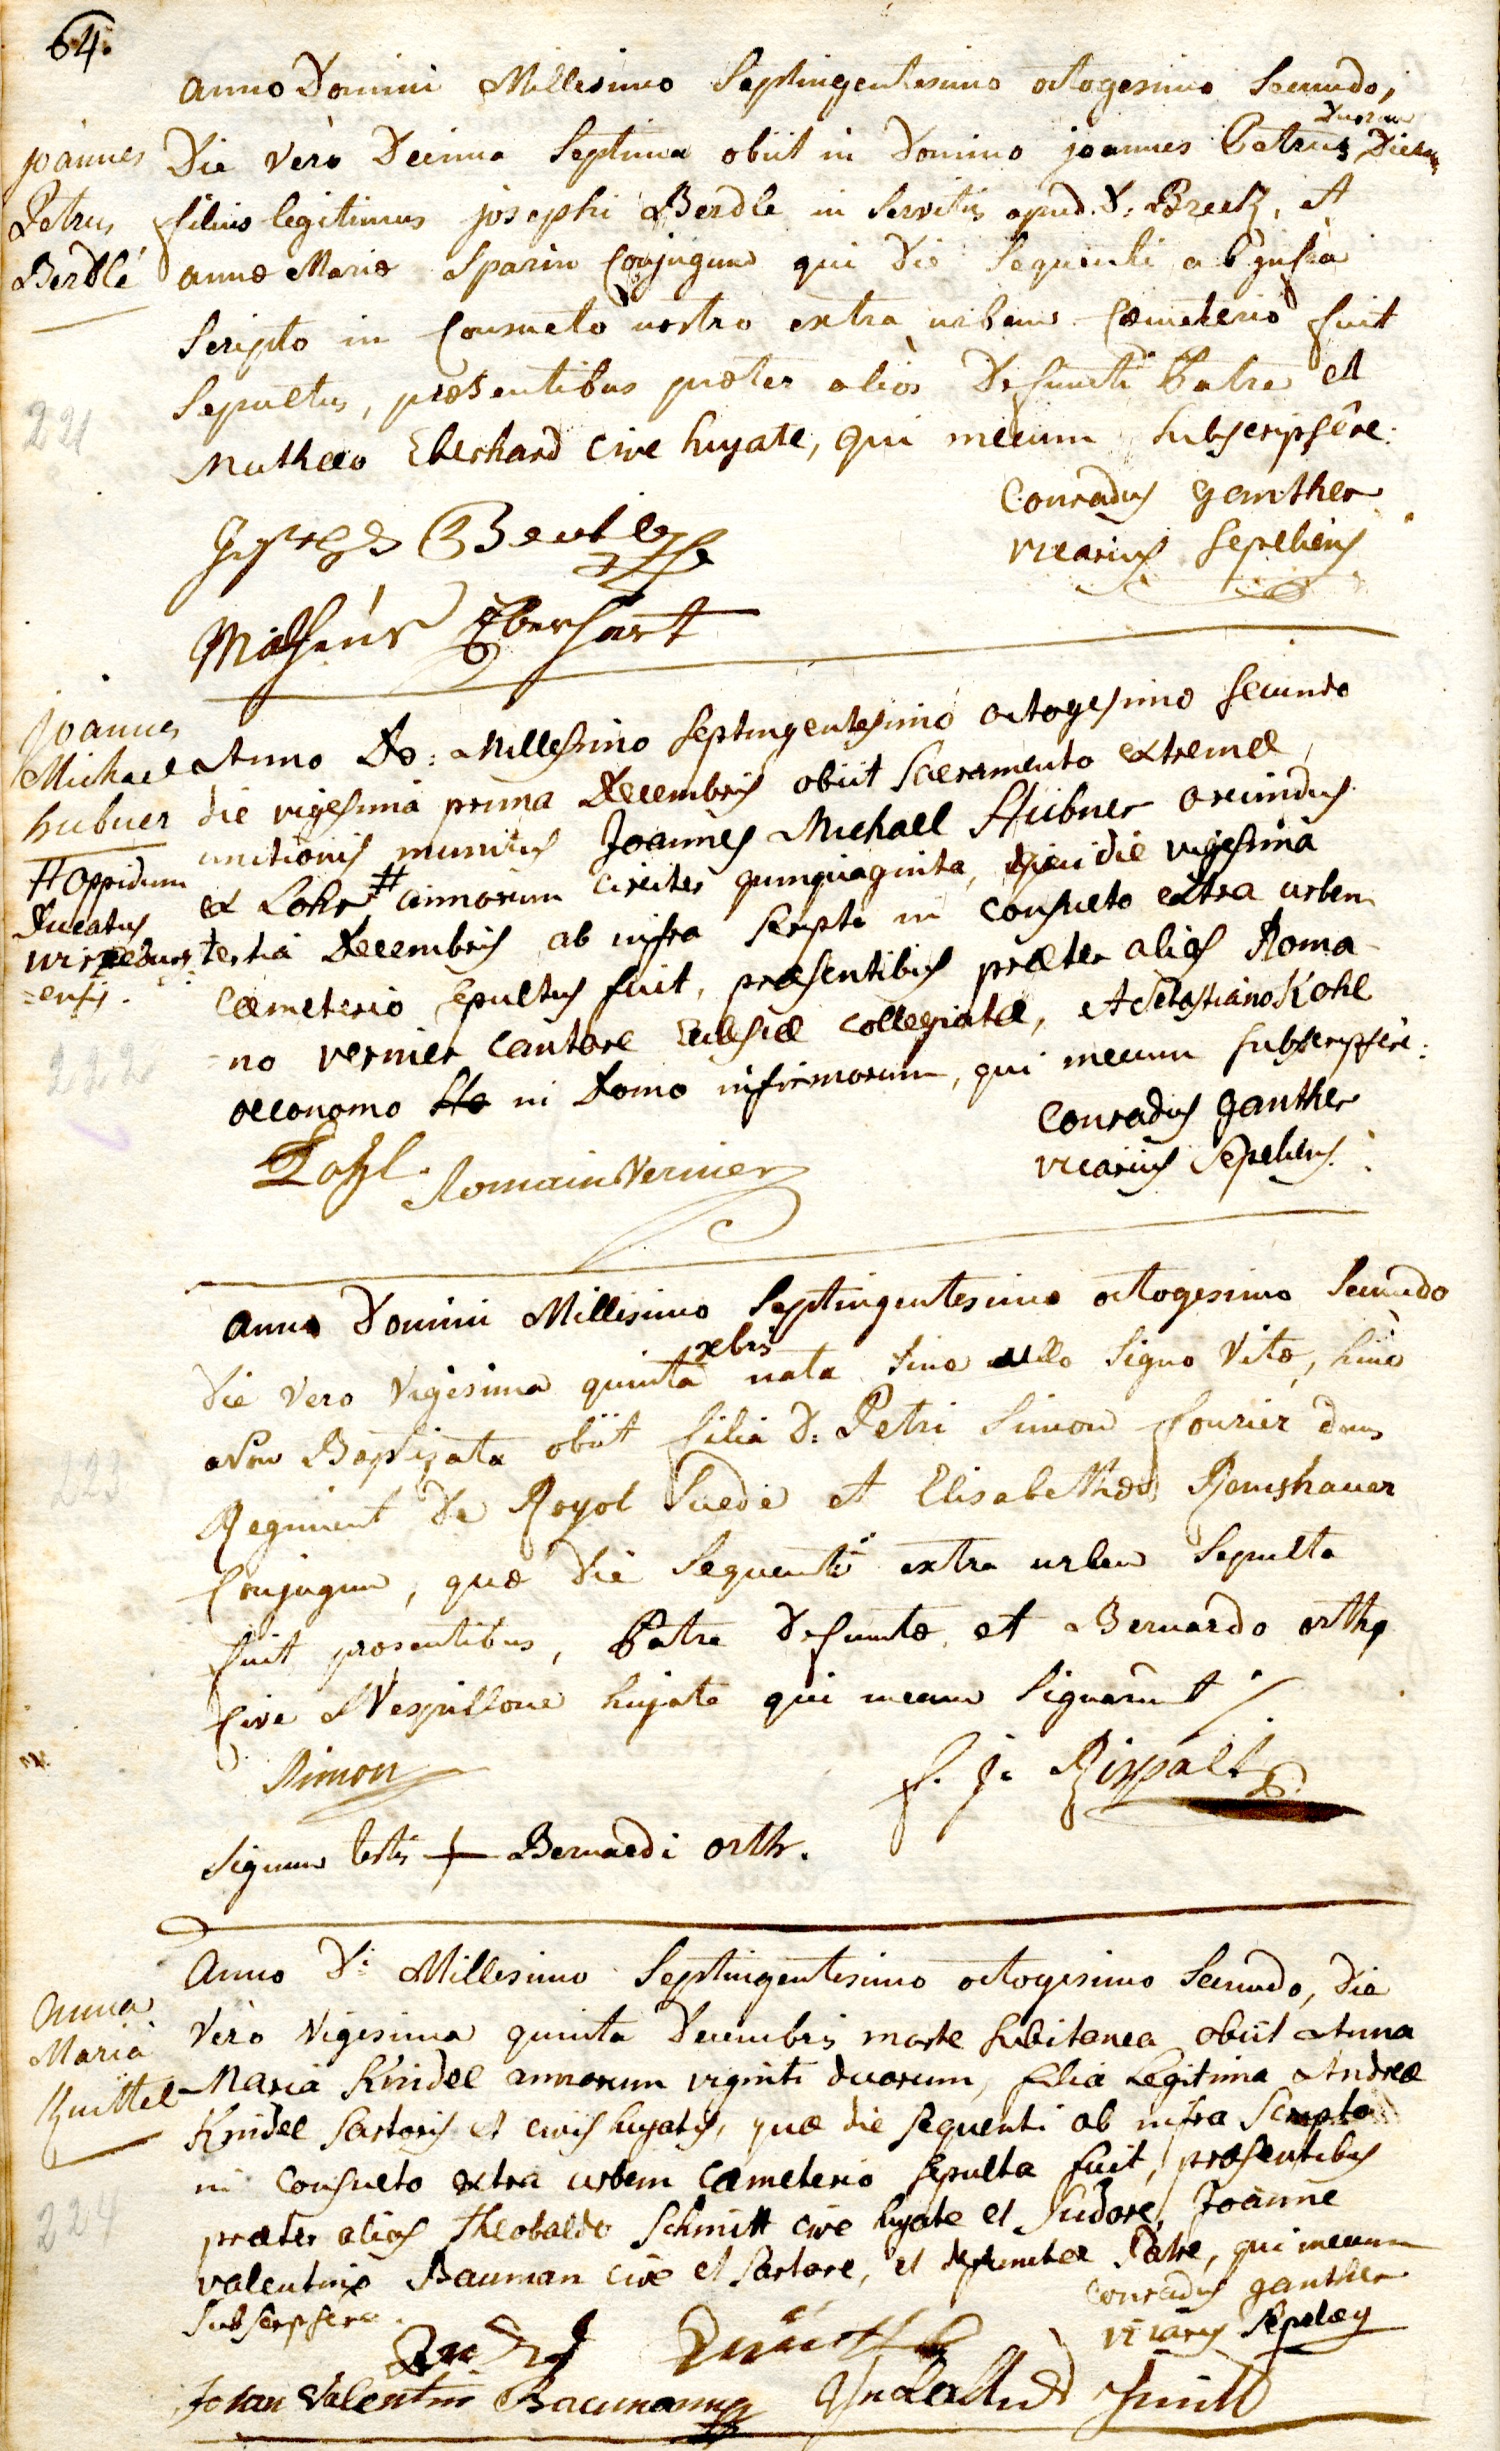 64.
anno Domini Millesimo Septingentesimo octogesimo Secundo,
joannes
Petrus
Berdlé
Die verò Decima Septima obiit in Domino joannes Petrus Duorum Dierum
filius legitimus josephi Berdle in Servitiis apud D: Breck, et
annæ Mariæ Sparin Conjugum qui Die Sequenti ab infra
Scripto in Consueto nostro extra urbem Cæmeterio fuit
Sepultus, præsentibus præter alios Defuncti Patre et
221
Mathæo Eberhard Cive hujate, qui mecum Subscripsêre:
Conradus ganther
vicarius Sepeliens
Joseph Berdle
Matheus Eberhart
joannes
Michael
hubner
# Oppidum
Ducatus
wirzeburg
=ensis.
Anno Do: Millesimo Septingentesimo octogesimo secundo
die vigesima prima Decembris obiit Sacramento extremæ
unctionis munitus Joannes Michael Hübner oriundus
ex Lohr # annorum circiter quinquaginta, qui die vigesima
tertia Decembris ab infra Scripto in Consueto extra urbem
Cæmeterio Sepultus fuit, præsentibus præter alios Roma-
-no vernier Cantore Ecclesiæ Collegiatæ, et Sebastiano Kohl
222
oeconomo in Domo infirmorum, qui mecum subscripsêre:
Conradus ganther
vicarius Sepeliens.
Kohl. Romain Vernier
anno Domini Millesimo Septingentesimo octogesimo Secundo
Die Vero Vigesima quinta xbris nata sine ullo Signo Vitæ, hinc
non Baptizata obiit filia D: Petri Simon fourier dans
223
Regiment De Royal Suede et Elisabethæ Remshauer
Conjugum, quæ Die Sequenti extra urbem Sepulta
fuit præsentibus, Patre Defunctæ et Bernardo orth
Cive et Vespillone hujate qui mecum Signarunt
Simon
F. J. Rippalt
Signum testis + Bernardi orth.
Anna
Maria
Knittel
Anno D: Millesimo Septingentesimo octogesimo Secundo, Die
Verò Vigesima quinta Decembris morte Subitanea obiit Anna
Maria Knidel annorum viginti duorum, filia Legitima Andreæ
Knidel Sartoris et civis hujatis, quæ die sequenti ab infra Scripto
in Consueto extra urbem Cæmeterio Sepulta fuit, præsentibus
224
præter alios Theobaldo Schmitt cive hujate et Sudore, Joanne
valentino Bauman cive et Sartore, et defunctæ Patre, qui mecum
Subscripsere.
Conradus ganther
vicarius Sepeliens
Johan Valentin Baumann